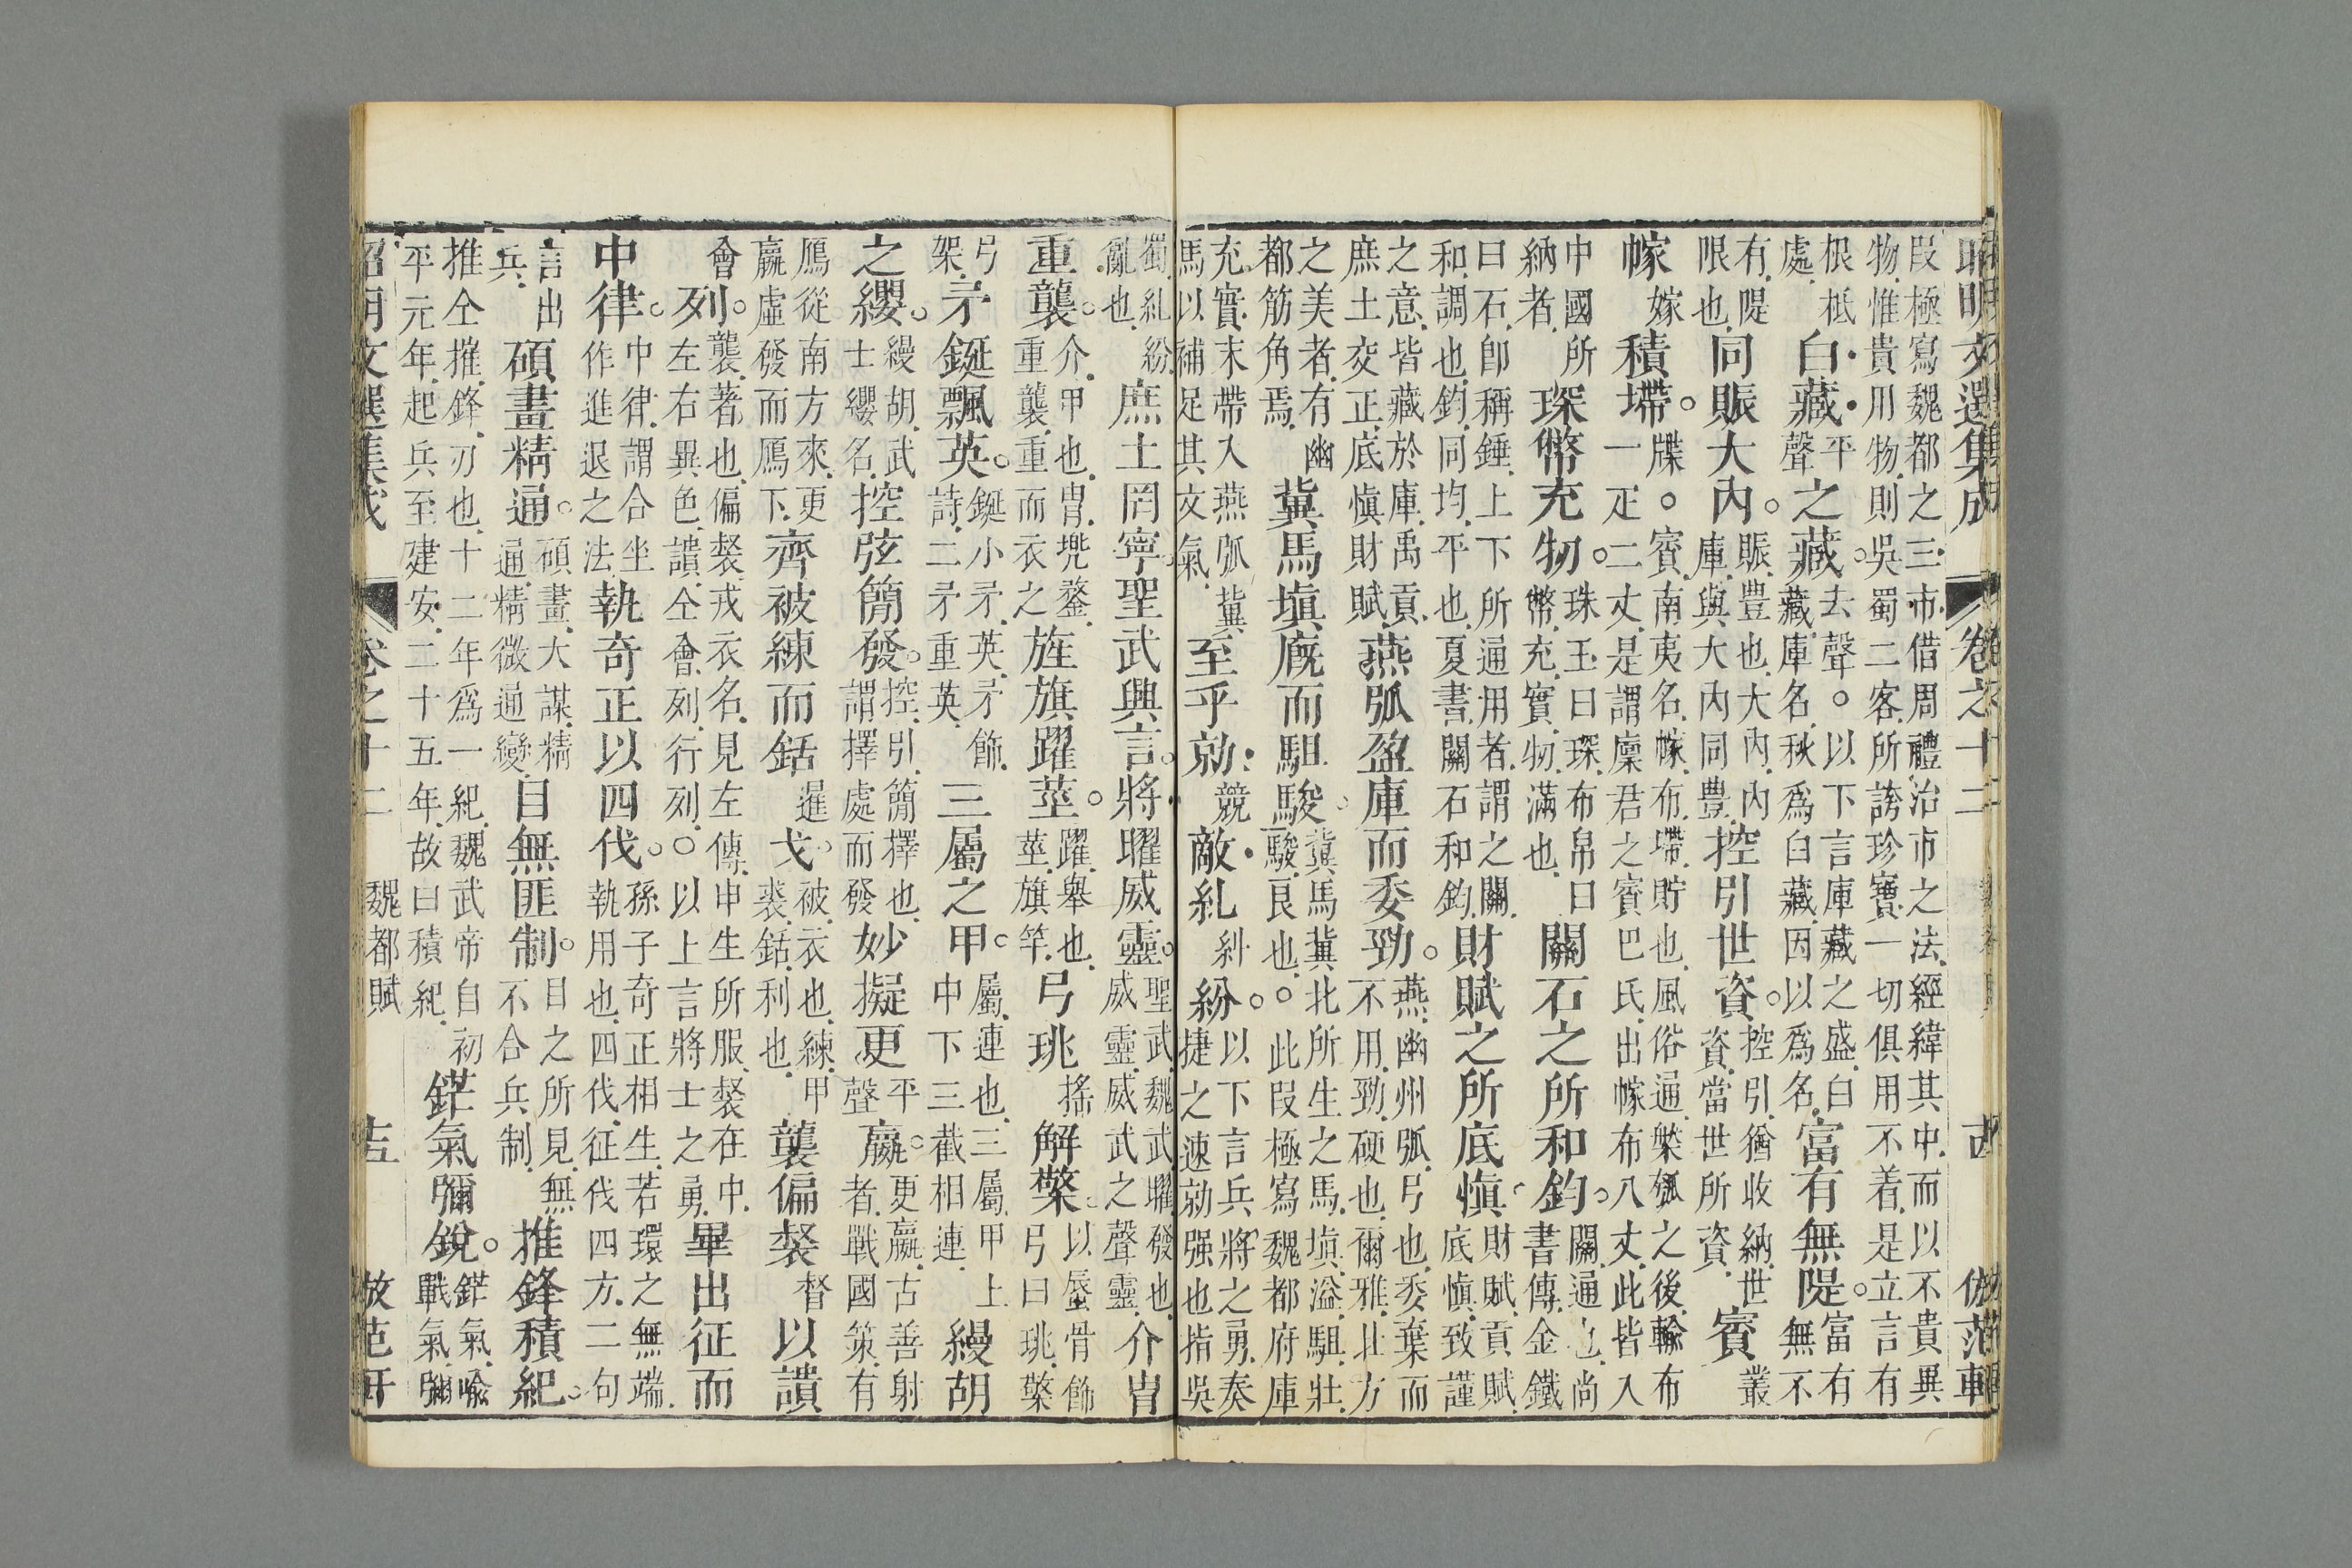 昭明文選集成 卷之十二 倣范軒
段極寫魏都之三市借周禮治市之法經緯其中而以不貴異物惟貴用物則吳蜀二客所誇珍寶一切俱用不着是立言有
根柢處白藏平聲之藏去聲。以下言庫藏之盛白藏庫名秋爲白藏因以爲名富有無隄富有無不
有隄限也同賑大內賑豊也大內內庫與大內同豊控引世資控引猶收納世資當世所資賨叢
幏嫁積墆牒。賨南夷名幏布墆貯也風俗通槃瓠之後輸布一疋二丈是謂廩君之賨巴氏出幏布八丈此皆入
中國所納者琛幣充牣珠玉曰琛布帛曰幣充實牣滿也關石之所和鈞關通也尚書傳金鐵
曰石卽稱錘上下所通用者謂之關和調也鈞同均平也夏書關石和鈞財賦之所底慎財賦貢賦底慎致謹
之意皆藏於庫禹貢庶土交正底慎財賦燕弧盈庫而委勁燕幽州弧弓也委棄而不用勁硬也爾雅北方
之美者有幽都筋角焉冀馬塡廐而駔駿冀馬冀北所生之馬塡溢駔壯駿良也。此段極寫魏都府庫
充實末帶入燕弧冀馬以補足其文氣至乎勍競敵糺糾紛以下言兵將之勇奏捷之速勍强也指吳
蜀糺紛亂也庶土罔寧聖武興言將曜威靈聖武魏武曜發也威靈威武之聲靈介冑
重襲介甲也冑兠鍪重襲重而衣之旌旗躍莖躍舉也莖旗竿弓珧搖解檠以蜃骨飾弓曰珧檠
弓架矛鋋飄英鋋小矛英矛飾詩二矛重英三屬之甲屬連也三屬甲上中下三截相連縵胡
之纓縵胡武士纓名控弦簡發控引簡擇也謂擇處而發妙擬更平聲嬴更嬴古善射者戰國策有
鴈從南方來更嬴虛發而鴈下齊被練而銛暹戈被衣也練甲裘銛利也襲偏裻督以讃
會列襲著也偏裻戎衣名見左傳申生所服裻在中左右異色讃仝會列行列。以上言將士之勇畢出征而
中律中律謂合坐作進退之法執奇正以四伐孫子奇正相生若環之無端執用也四伐征伐四方二句
言出兵碩畫精通碩畫大謀精通精微通變目無匪制目之所見無不合兵制推鋒積紀
推仝摧鋒刃也十二年爲一紀魏武帝自初平元年起兵至建安二十五年故曰積紀鋩氣彌銳鋩氣喻戰氣彌
昭明文選集成 卷之十二 魏都賦 倣范軒